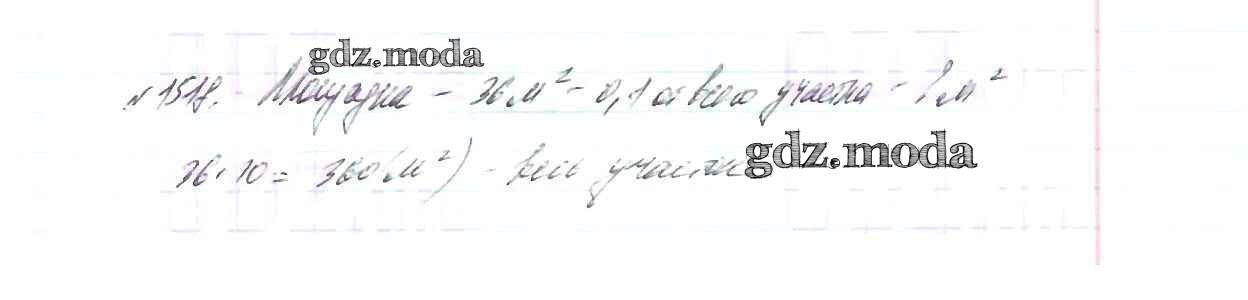 gdz.moda
№1518. Площадка - 36 м² - 0,1 от всего участка - ? м²
36·10 = 360 (м²) - весь участок gdz.moda